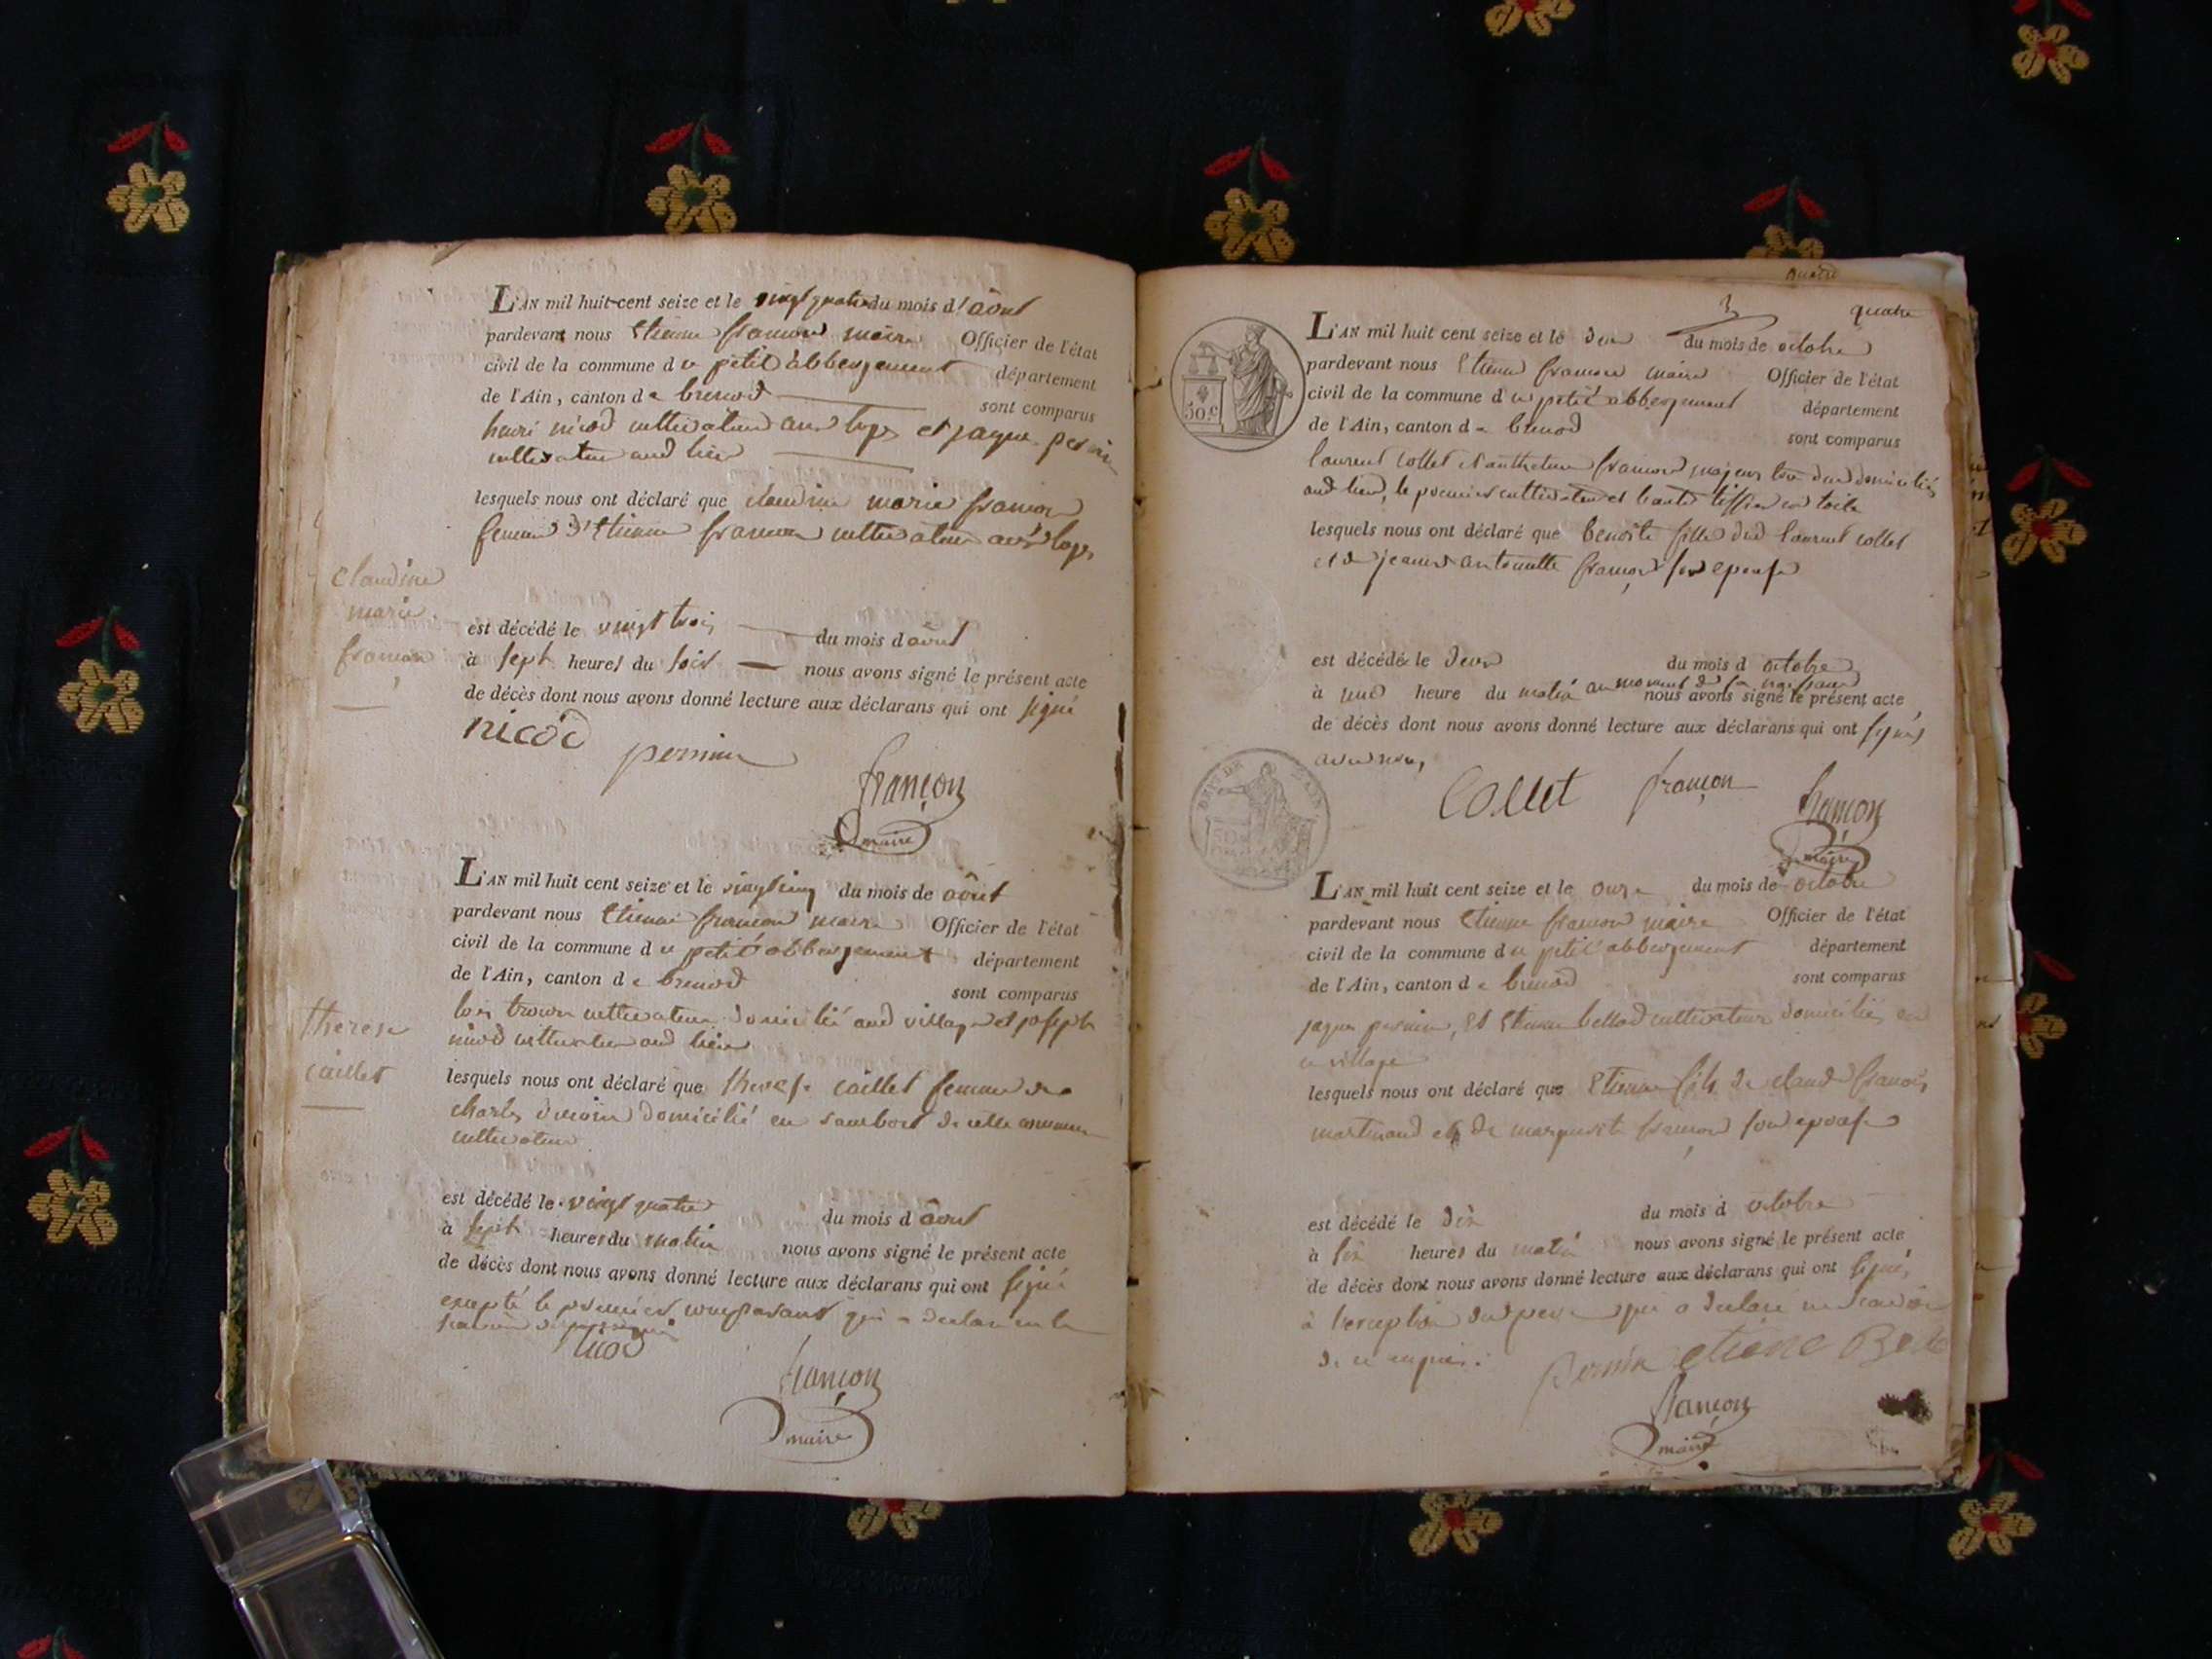 L'AN mil huit cent seize et le vingt quatre du mois d'aôut
pardevant nous Etienne françon maire Officier de l'état
civil de la commune du petit abbergement département
de l'Ain, canton de brenod sont comparus
henri nicod cultivateur aux loges et jaque pernin
cultivateur aud lieu
lesquels nous ont déclaré que claudine marie françon
femme d'Etienne françon cultivateur aux loges
claudine
marie
françon
est décédé le vingt trois du mois d aôut
à sept heures du soir nous avons signé le présent acte
de décès dont nous avons donné lecture aux déclarans qui ont signé
nicod
pernin
françon
maire
L'AN mil huit cent seize et le vingt cinq du mois de aôut
pardevant nous Etienne françon maire Officier de l'état
civil de la commune du petit abbergement département
de l'Ain, canton de brenod sont comparus
cultivateur domicilié aud village et joseph
nicod cultivateur aud lieu
therese
caillet
lesquels nous ont déclaré que therese caillet femme de
charles domicilié en de cette commune
cultivateur
est décédé le vingt quatre du mois d aôut
à sept heures du matin nous avons signé le présent acte
de décès dont nous avons donné lecture aux déclarans qui ont signé
excepté le premier comparant qui a déclaré ne le
nicod
françon
maire
3 quatre
50.c
L'AN mil huit cent seize et le deux du mois de octobre
pardevant nous Etienne françon maire Officier de l'état
civil de la commune du petit abbergement département
de l'Ain, canton de brenod sont comparus
laurent collet et anthelme françon majeurs tous deux domiciliés
aud lieu, le premier cultivateur et l'autre tissier en toile
lesquels nous ont déclaré que benoite fille dud laurent collet
et de jeanne antoinette françon son epouse
est décédé le deux du mois d octobre
à une heure du matin au moment de sa naissance nous avons signé le présent acte
de décès dont nous avons donné lecture aux déclarans qui ont signés
avec nous
DEPT DE L'AIN
Collet françon
françon
maire
L'AN mil huit cent seize et le onze du mois de octobre
pardevant nous Etienne françon maire Officier de l'état
civil de la commune du petit abbergement département
de l'Ain, canton de brenod sont comparus
jaque pernin, et Etienne cultivateurs domiciliés en
ce village
lesquels nous ont déclaré que Etienne fils de claude françois
martinand et de marguerite françon son epouse
est décédé le dix du mois d octobre
à six heures du matin nous avons signé le présent acte
de décès dont nous avons donné lecture aux déclarans qui ont signés
à l'exception du pere qui a declaré ne savoir
de ce requis.
pernin etiene
françon
maire